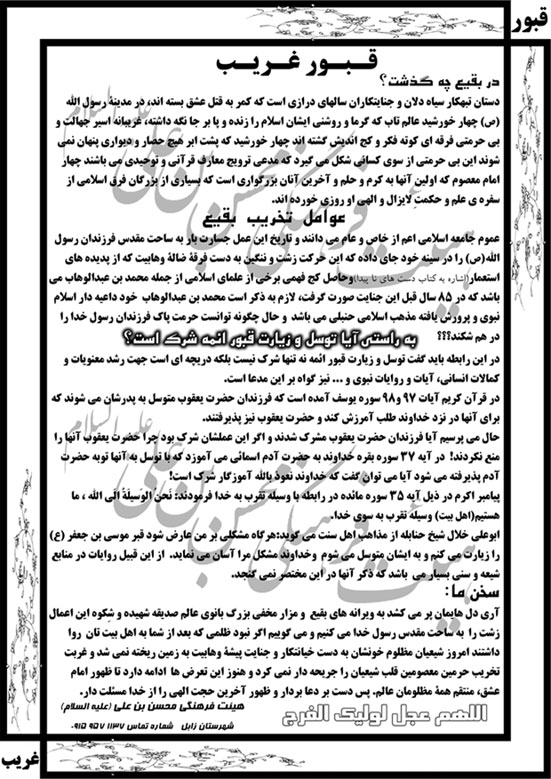 قبور
قبور غریب
در بقیع چه گذشت؟
دستان تبهکار سیاه دلان و جنایتکاران سالهای درازی است که کمر به قتل عشق بسته اند، در مدینهٔ رسول الله
(ص) چهار خورشید عالم تاب که گرما و روشنی ایشان اسلام را زنده و پا بر جا نگه داشته، غریبانه اسیر جهالت و
بی حرمتی فرقه ای کوته فکر و کج اندیش گشته اند چهار خورشید که پشت ابر هیچ حصار و دیواری پنهان نمی
شوند این بی حرمتی از سوی کسانی شکل می گیرد که مدعی ترویج معارف قرآنی و توحیدی می باشند چهار
امام معصوم که اولین آنها به کرم و حلم و آخرین آنان بزرگواری است که بسیاری از بزرگان فرق اسلامی از
سفره ی علم و حکمتِ لایزال و الهی او روزی خورده اند.
عوامل تخریب بقیع
عموم جامعه اسلامی اعم از خاص و عام می دانند و تاریخ این عمل جسارت بار به ساحت مقدس فرزندان رسول
الله(ص) را در سینه خود جای داده که این حرکت زشت و ننگین به دست فرقهٔ ضالهٔ وهابیت که از پدیده های
استعمار(اشاره به کتاب دست های نا پیدا)وحاصل کج فهمی برخی از علمای اسلامی از جمله محمد بن عبدالوهاب می
باشد که در ۸۵ سال قبل این جنایت صورت گرفت، لازم به ذکر است محمد بن عبدالوهاب خود داعیه دار اسلام
نبوی و پرورش یافته مذهب اسلامی حنبلی می باشد و حال چگونه توانست حرمت پاک فرزندان رسول خدا را
در هم شکند؟؟؟
به راستی آیا توسل و زیارت قبور ائمه شرک است؟
در این رابطه باید گفت توسل و زیارت قبور ائمه نه تنها شرک نیست بلکه دریچه ای است جهت رشد معنویات و
کمالات انسانی، آیات و روایات نبوی و ... نیز گواه بر این مدعا است.
در قرآن کریم آیات ۹۷ و۹۸ سوره یوسف آمده است که فرزندان حضرت یعقوب متوسل به پدرشان می شوند که
برای آنها در نزد خداوند طلب آمرزش کند و حضرت یعقوب نیز پذیرفتند.
حال می پرسیم آیا فرزندان حضرت یعقوب مشرک شدند و اگر این عملشان شرک بود چرا حضرت یعقوب آنها را
منع نکردند! در آیه ۳۷ سوره بقره خداوند به حضرت آدم اسمائی می آموزد که با توسل به آنها توبه حضرت
آدم پذیرفته می شود آیا می توان گفت که خداوند نعوذ بالله آموزگار شرک است!
پیامبر اکرم در ذیل آیه ۳۵ سوره مائده در رابطه با وسیله تقرب به خدا فرمودند: نَحنُ الوَسیلَةُ اِلَی الله ، ما
هستیم(اهل بیت) وسیله تقرب به سوی خدا.
ابوعلی خلال شیخ حنابله از مذاهب اهل سنت می گوید:هرگاه مشکلی بر من عارض شود قبر موسی بن جعفر (ع)
را زیارت می کنم و به ایشان متوسل می شوم وخداوند مشکل مرا آسان می نماید. از این قبیل روایات در منابع
شیعه و سنی بسیار می باشد که ذکر آنها در این مختصر نمی گنجد.
سخن ما:
آری دل هایمان پر می کشد به ویرانه های بقیع و مزار مخفی بزرگ بانوی عالم صدیقه شهیده و شِکوه این اعمال
زشت را به ساحت مقدس رسول خدا می کنیم و می گوییم اگر نبود ظلمی که بعد از شما به اهل بیت تان روا
داشتند امروز شیعیان مظلوم خونشان به دست خیانتکار و جنایت پیشهٔ وهابیت به زمین ریخته نمی شد و غربت
تخریب حرمین معصومین قلب شیعیان را جریحه دار نمی کرد و هنوز این تعرض ها ادامه دارد تا ظهور امام
عشق، منتقم همهٔ مظلومان عالم. پس دست بر دعا بردار و ظهور آخرین حجت الهی را از خدا مسئلت دار.
اللهم عجل لولیک الفرج
هیئت فرهنگی محسن بن علی (علیه السلام)
شهرستان زابل شماره تماس ۱۱۳۷ ۹۵۷ ۰۹۱۵
غریب
هیئت فرهنگی محسن بن علی علیه السلام
هیئت فرهنگی محسن بن علی علیه السلام